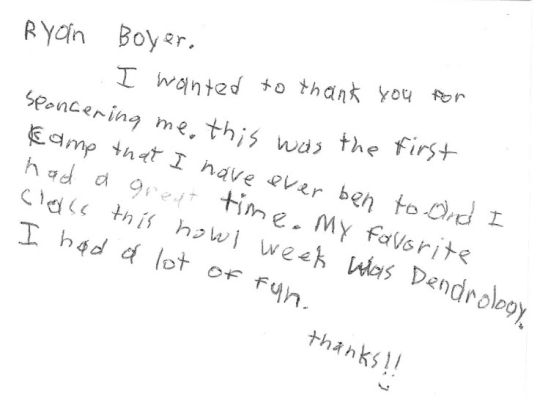 Ryan Boyer.
I wanted to thank you for
sponcering me. this was the first
camp that I have ever ben to. And I
had a great time. My favorite
class this howl week was Dendrology.
I had a lot of fun.
thanks!!